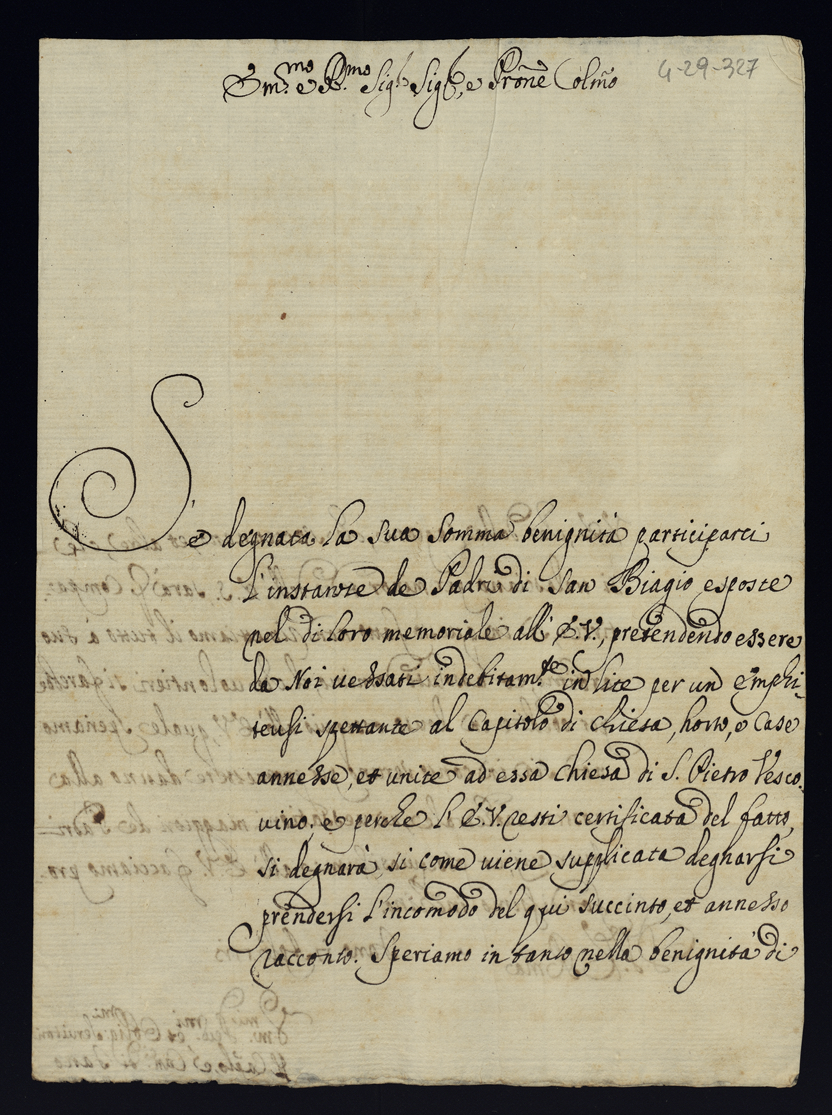 Em.mo e R.mo Sig.r Sig.r, e Prone Colmo
4-29-327
S'è degnata la sua somma benignità participarci
l'instanze de Padri di San Biagio esposte
nel di loro memoriale all'E.V., pretendendo essere
da Noi vessati indebitam.te in lite per un emphi-
teusi spettante al Capitolo di chiesa, horto, e Case
annesse, et unite ad essa Chiesa di S. Pietro Vesco-
vino; e perche l'E.V. resti certificata del fatto,
si degnarà si come viene supplicata degnarsi
prendersi l'incomodo del qui succinto, et annesso
racconto. Speriamo in tanto nella benignità di